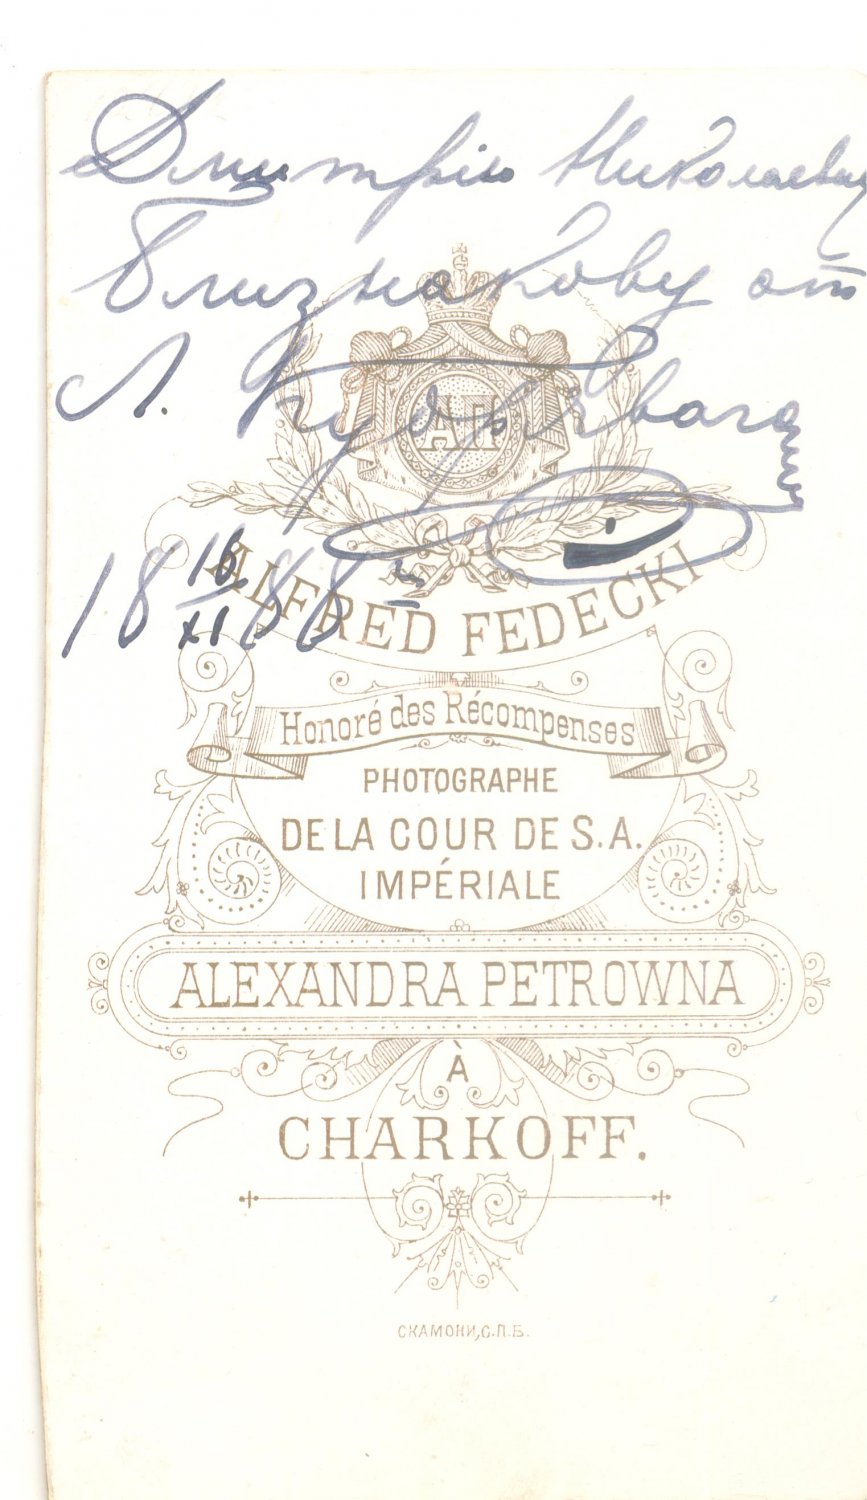 Дмитрію
Близнакову от
Л.
АП
18 16/XI 88
ALFRED FEDECKI
Honoré des Récompenses
PHOTOGRAPHE
DE LA COUR DE S.A.
IMPÉRIALE
ALEXANDRA PETROWNA
À
CHARKOFF.
СКАМОНИ, С.П.Б.